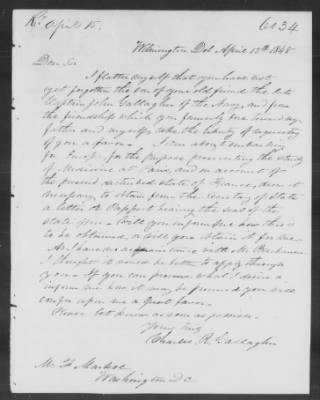 Rd April 15.
6034
Wilmington Del April 13th 1848
Dear Sir
I flatter myself that you have not
yet forgotten the son of your old friend the late
Captain John Gallagher of the Navy, and from
the friendship which you formerly bore toward my
father and myself take the liberty of inquiring
of you a favor. I am about embarking
for Europe for the purpose prosecuting the study
of Medicine at Paris, and on account of
the present state of France, deem it
necessary, to obtain from the Secretary of State
a letter or Passport having the seal of the
state upon. Will you inform me how this is
to be obtained, or will you obtain it for me.
As I have no with Mr Buchanan
I thought it would be better to apply through
you. If you can procure what I desire or
inform me how it may be procured you will
confer upon me a great favor.
Please let know as soon as possible.
Yours truly
Charles R. Gallagher
Mr F Markoe
Washington D C